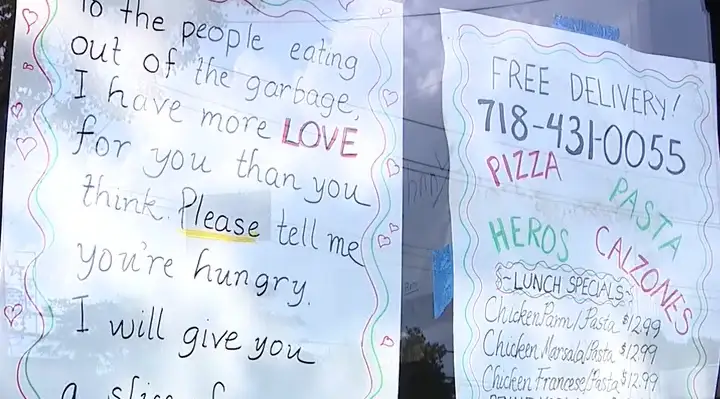 to the people eating
out of the garbage,
I have more LOVE
for you than you
think. Please tell me
you're hungry.
I will give you
a slice
FREE DELIVERY!
718-431-0055
PIZZA
PASTA
HEROS
CALZONES
~LUNCH SPECIALS~
Chicken Parm/Pasta $12.99
Chicken Marsala/Pasta $12.99
Chicken Francese/Pasta $12.99